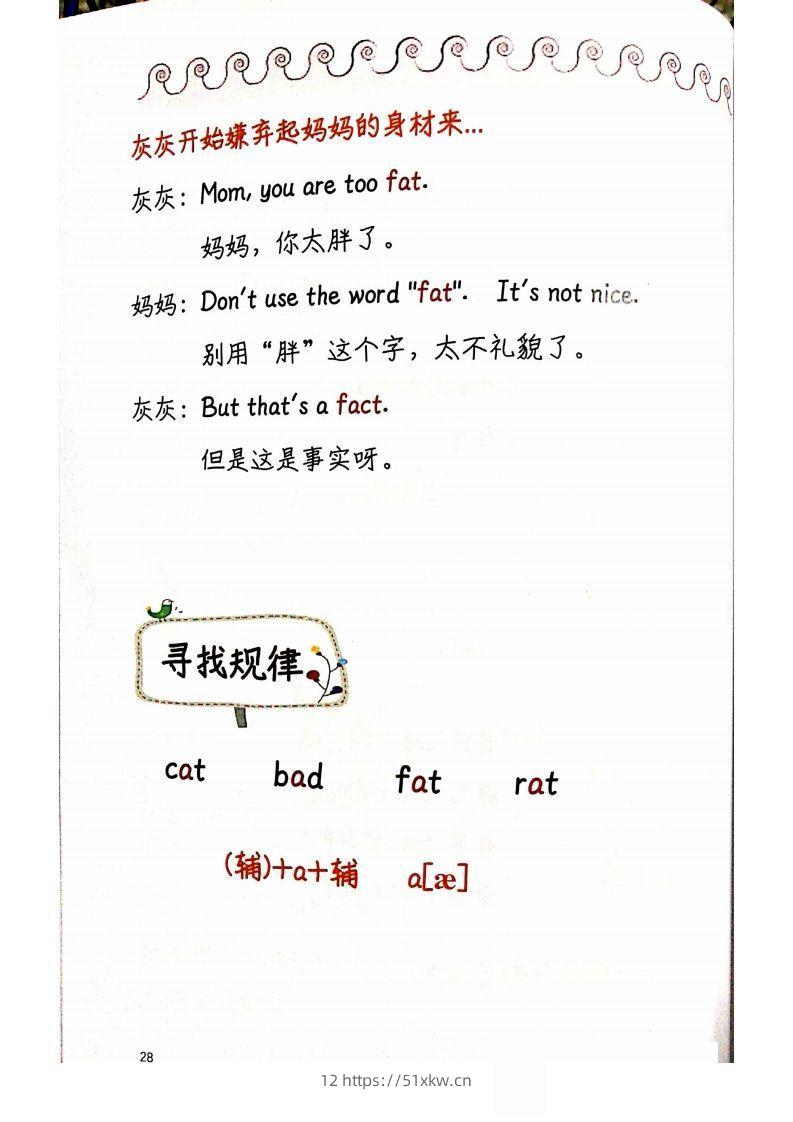 灰灰开始嫌弃起妈妈的身材来...
灰灰：Mom, you are too fat.
妈妈，你太胖了。
妈妈：Don't use the word "fat". It's not nice.
别用“胖”这个字，太不礼貌了。
灰灰：But that's a fact.
但是这是事实呀。
寻找规律
cat bad fat rat
(辅)+a+辅 a[æ]
28
12 https://51xkw.cn